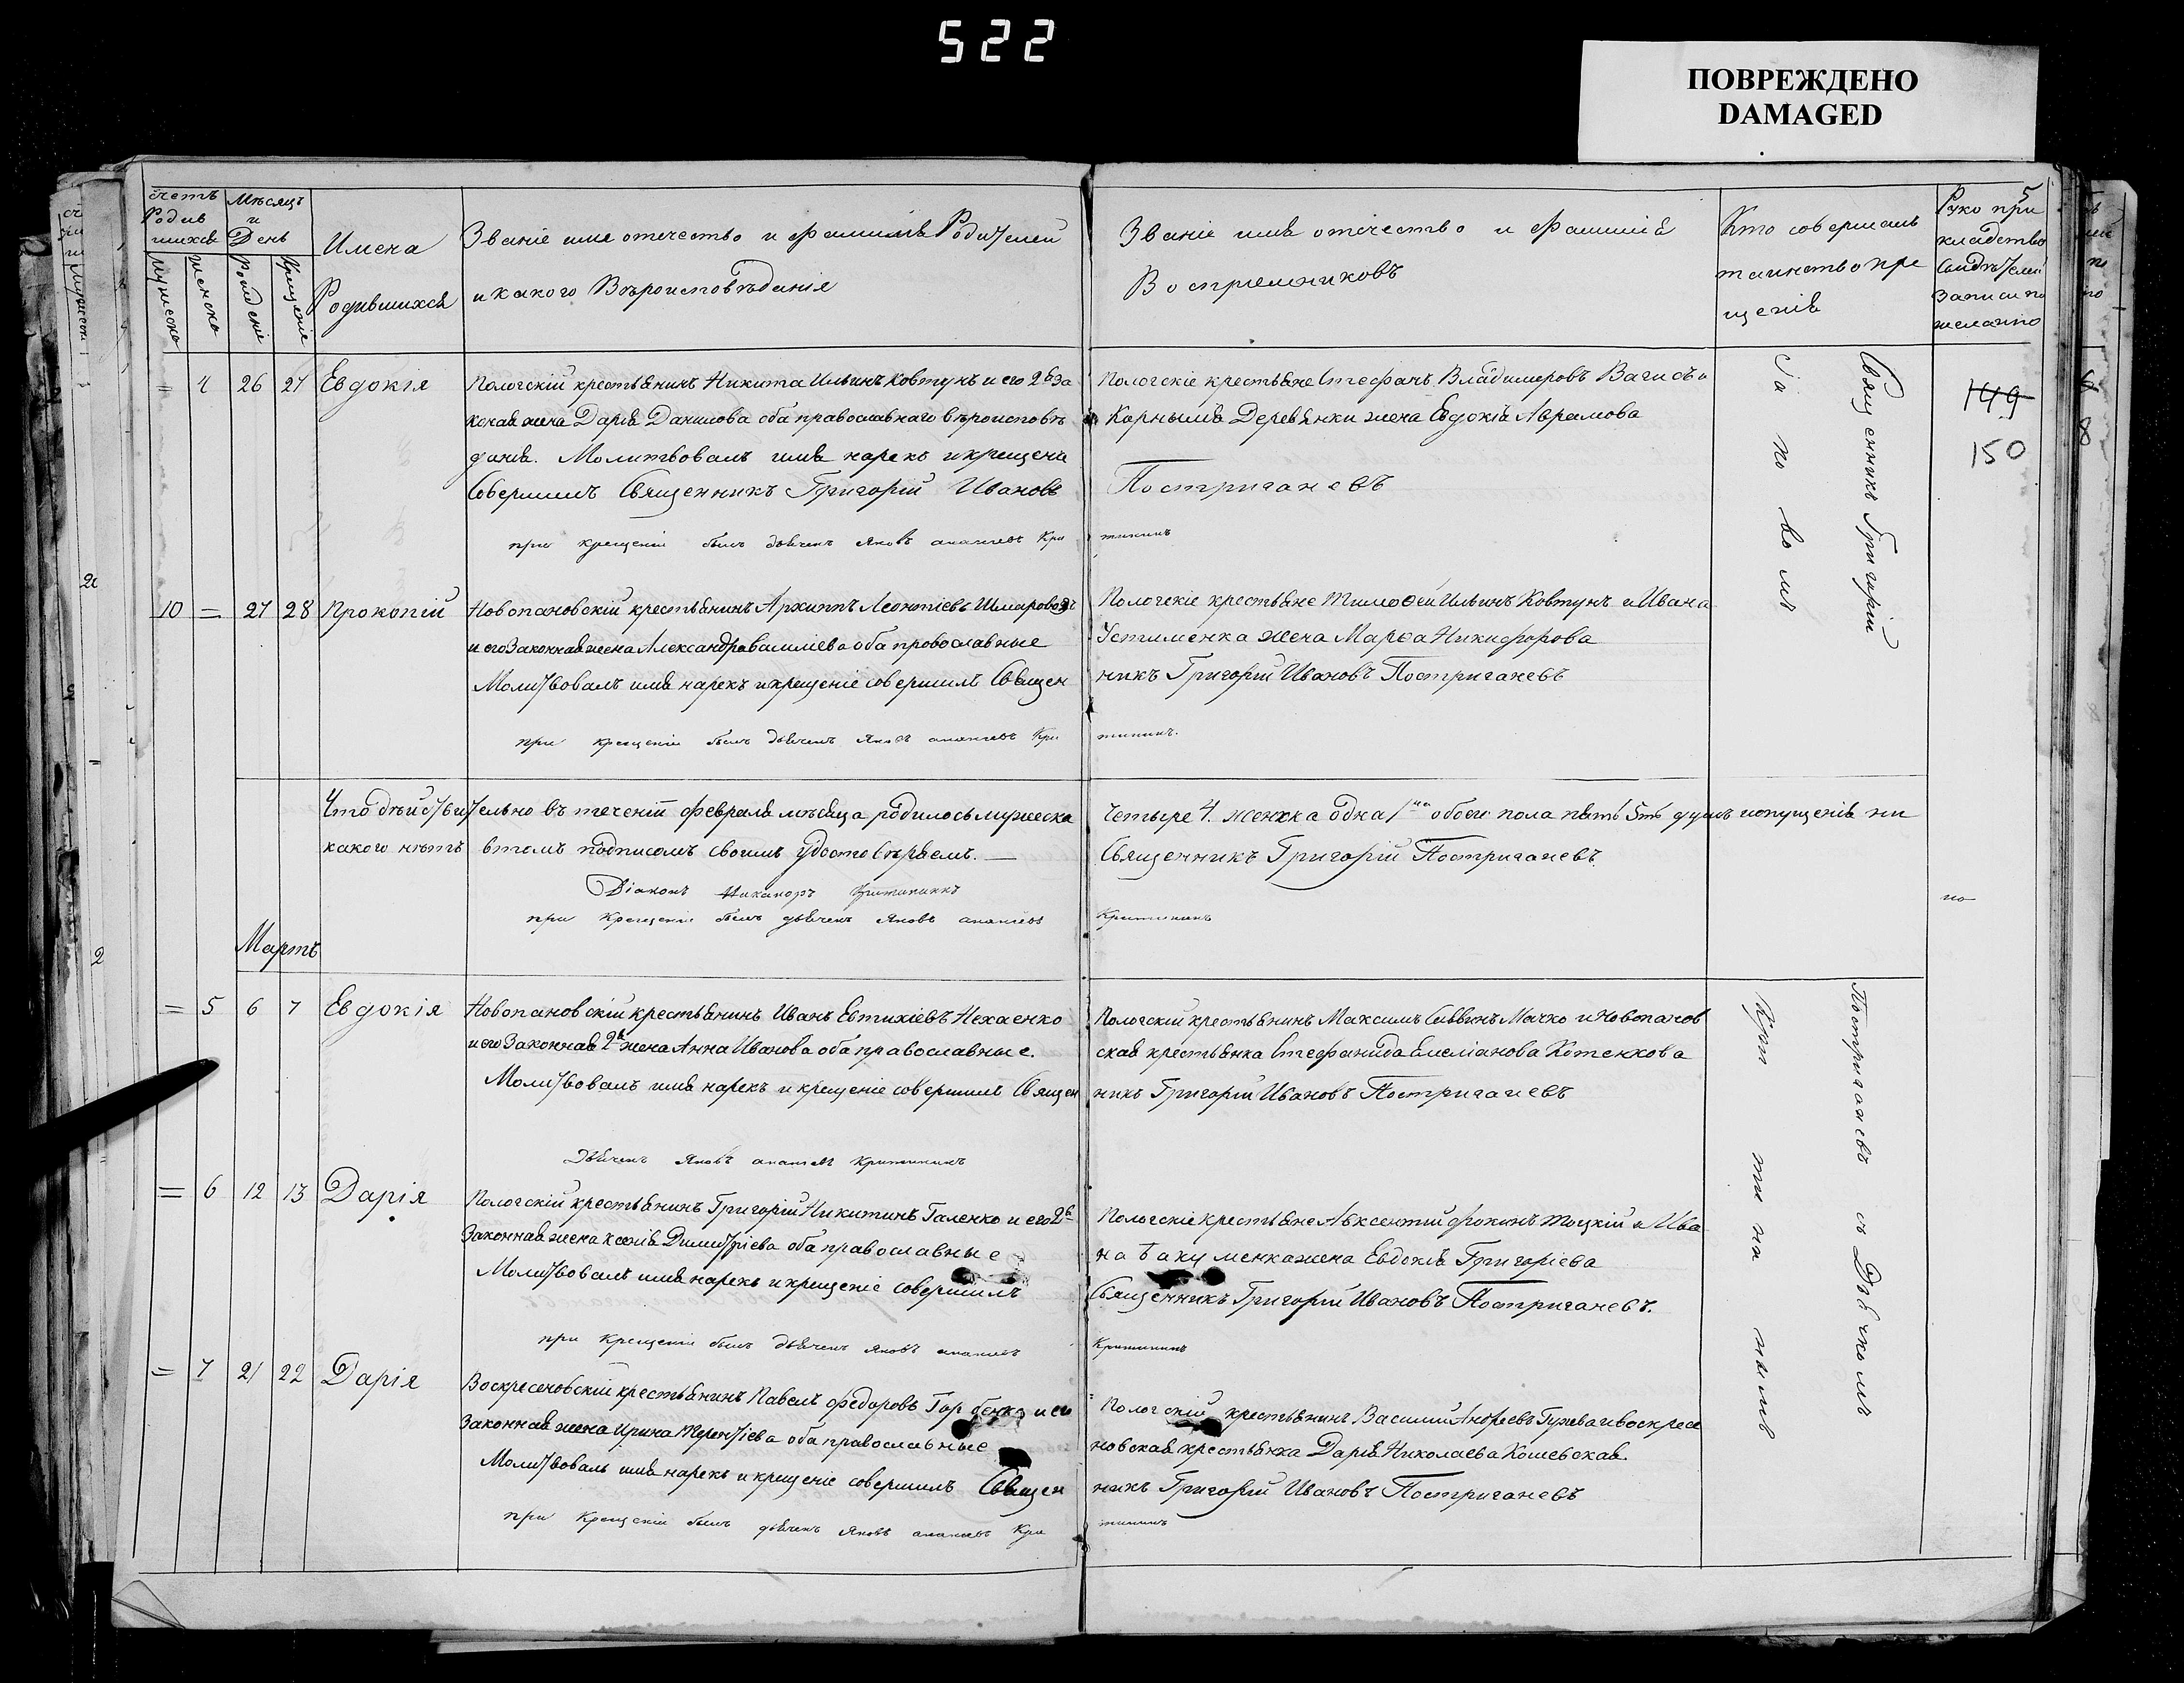 522
ПОВРЕЖДЕНО
DAMAGED
5
счетъ Родившихся
Мѣсяцъ и День
Имена Родившихся
Званіе имя отечество и фамилія Родителей
и какого Вѣроисповѣданія
Званіе имя отечество и фамилія
Воспріемниковъ
Кто совершалъ таинство крещенія
Руко прикладство Свидѣтелей Записи по желанію
Мужеска
Женска
Рожденіе
Крещеніе
= 4 26 27 Евдокія
Пологскій крестьянинъ Никита Ильинъ Ковтунъ и его 2я За
конная жена Дарія Данилова оба православнаго вѣроисповѣ
данія. Молитвовалъ имя нарекъ и крещеніе
Совершилъ Священникъ Григорій Ивановъ
при крещеніи былъ дьячекъ Яковъ ананіевъ Кри
Пологскіе крестьяне Стефанъ Владимеровъ Вагисъ и
Карнылія Деревянки жена Евдокія Аврамова
Постриганевъ
тининъ
149
150
10 = 27 28 Прокопій
Новопановскій крестьянинъ Архиппъ Леонтіевъ Шмаровозъ
и его Законная жена Александра Василіева оба православные
Молитвовалъ имя нарекъ и крещеніе совершилъ Священ
при крещеніи былъ дьячекъ Яковъ ананіевъ Кри
Пологскіе крестьяне Тимофей Ильинъ Ковтунъ и Ивана
Устименка жена Марѳа Никифорова
никъ Григорій Ивановъ Постриганевъ
тининъ.
Что дѣйствительно въ теченіи февраля мѣсяца родилось мужеска
четыре 4. женска одна 1на обоего пола пять 5ть душъ и опущенія ни
какого нѣтъ въ томъ подписомъ своимъ удостовѣряемъ. —
Священникъ Григорій Постриганевъ.
Діаконъ Никаноръ Критининъ
при крещеніи былъ дьячекъ Яковъ ананіевъ
Критининъ
по
Мартъ
= 5 6 7 Евдокія
Новопановскій крестьянинъ Иванъ Евтихіевъ Нехаенко
и его Законная 2я жена Анна Иванова оба православные.
Молитвовалъ имя нарекъ и крещеніе совершилъ Священ
Дьячекъ Яковъ ананіевъ Критининъ
Пологскій крестьянинъ Максимъ Саввинъ Мачко и Новопанов
ская крестьянка Стефанида Емеліанова Котенкова
никъ Григорій Ивановъ Постриганевъ
= 6 12 13 Дарія
Пологскій крестьянинъ Григорій Никитинъ Галенко и его 2я
Законная жена Ксенія Димитріева оба православные
Молитвовалъ имя нарекъ и крещеніе совершилъ
при крещеніи былъ дьячекъ Яковъ ананіевъ
Пологскіе крестьяне Авксентій Фокинъ Тоцкій и Ива
на Бакуменка жена Евдокія Григоріева
Священникъ Григорій Ивановъ Постриганевъ.
Критининъ
= 7 21 22 Дарія
Воскресеновскій крестьянинъ Павелъ Федоровъ Горбенко и его
Законная жена Ирина Терентіева оба православные
Молитвовалъ имя нарекъ и крещеніе совершилъ Священ
при крещеніи былъ дьячекъ Яковъ ананіевъ Кри
Пологскій крестьянинъ Василій Андреевъ Гужва и воскресе
новская крестьянка Дарія Николаева Кошевская.
никъ Григорій Ивановъ Постриганевъ
тининъ
Священникъ Григорій Постриганевъ съ Дьячкомъ
Яковомъ Критининымъ